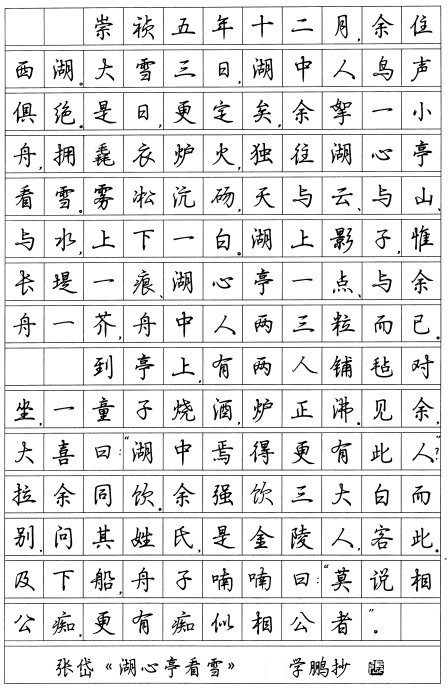 崇祯五年十二月,余住
西湖。大雪三日,湖中人鸟声
俱绝。是日,更定矣,余挐一小
舟,拥毳衣炉火,独往湖心亭
看雪。雾凇沆砀,天与云、与山、
与水,上下一白。湖上影子,惟
长堤一痕、湖心亭一点、与余
舟一芥,舟中人两三粒而已。
到亭上,有两人铺毡对
坐,一童子烧酒,炉正沸。见余,
大喜曰:“湖中焉得更有此人”?
拉余同饮。余强饮三大白而
别,问其姓氏,是金陵人,客此。
及下船,舟子喃喃曰:“莫说相
公痴,更有痴似相公者”。
张岱《湖心亭看雪》 学鹏抄